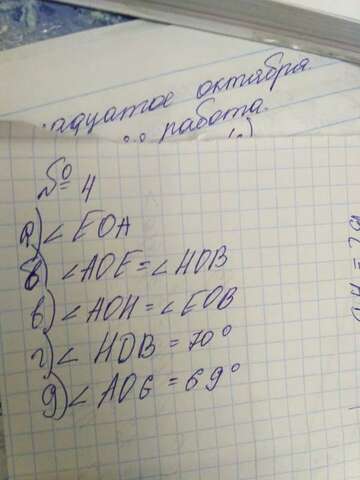 октября.
работа.
№ 4
а) < EOA
б) < AOE = < HOB
в) < AOH = < EOB
г) < HOB = 70°
д) < AOG = 69°